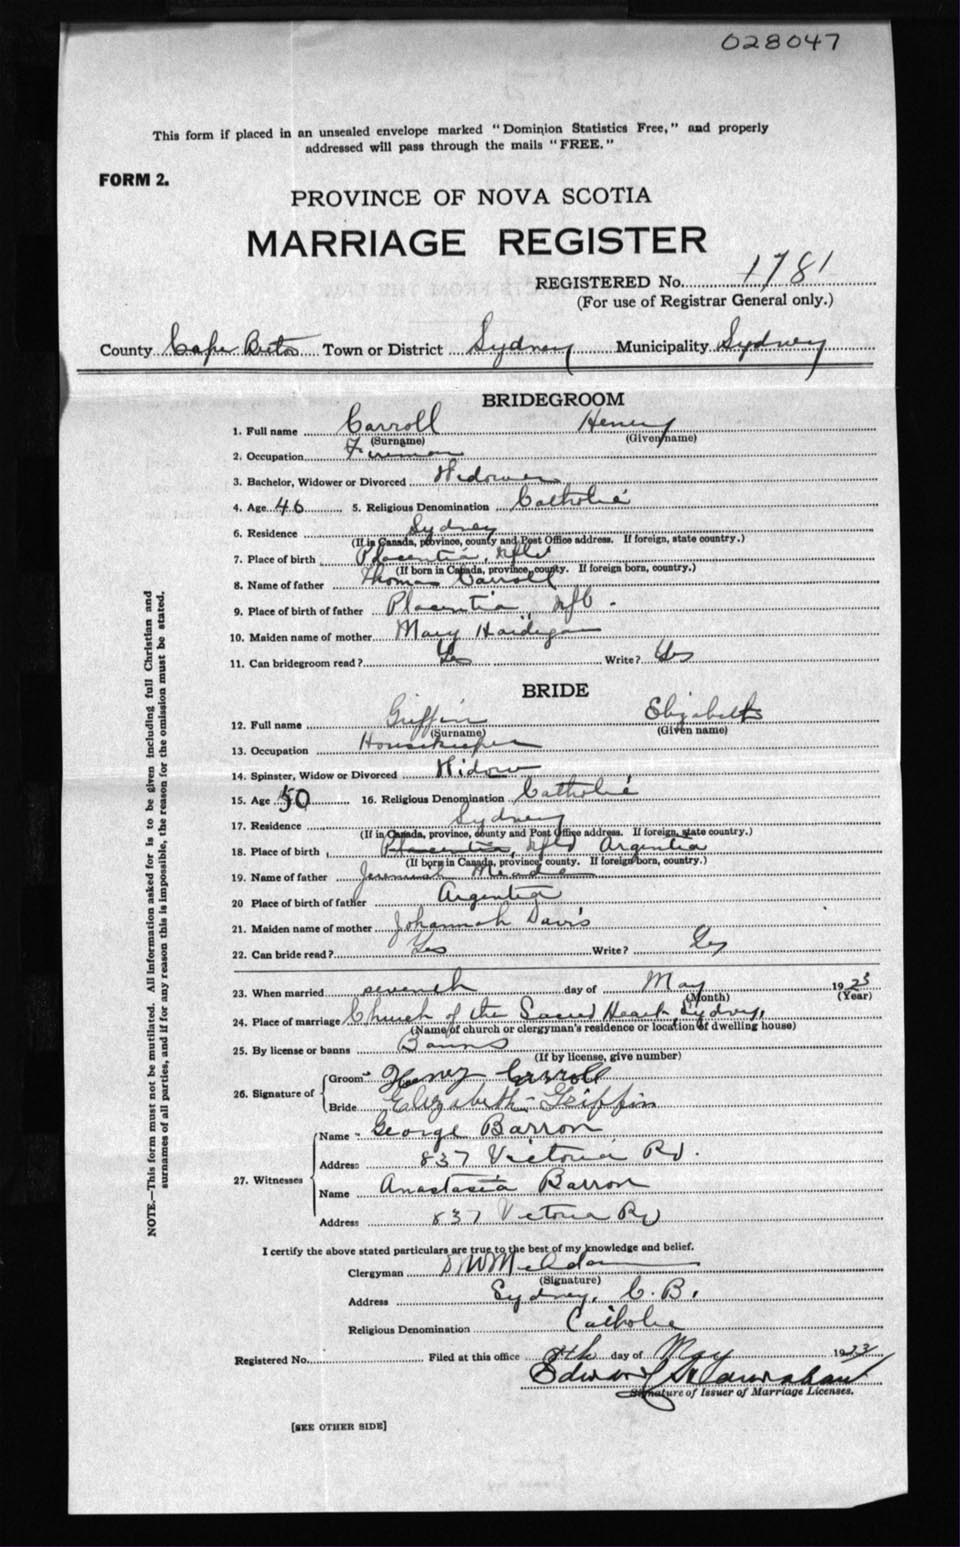 028047
This form if placed in an unsealed envelope marked "Dominion Statistics Free," and properly
addressed will pass through the mails "FREE."
FORM 2.
PROVINCE OF NOVA SCOTIA
MARRIAGE REGISTER
REGISTERED No. 1781
(For use of Registrar General only.)
County Cape Breton Town or District Sydney Municipality Sydney
BRIDEGROOM
1. Full name Carroll Henry
(Surname) (Given name)
2. Occupation Fireman
3. Bachelor, Widower or Divorced Widower
4. Age 46 5. Religious Denomination Catholic
6. Residence Sydney
(If in Canada, province, county and Post Office address. If foreign, state country.)
7. Place of birth Placentia, Nfld
(If born in Canada, province, county. If foreign born, country.)
8. Name of father Thomas Carroll
9. Place of birth of father Placentia, Nfld.
10. Maiden name of mother Mary Hardigan
11. Can bridegroom read? Yes Write? Yes
BRIDE
12. Full name Griffin Elizabeth
(Surname) (Given name)
13. Occupation Housekeeper
14. Spinster, Widow or Divorced Widow
15. Age 50 16. Religious Denomination Catholic
17. Residence Sydney
(If in Canada, province, county and Post Office address. If foreign, state country.)
18. Place of birth Placentia, Nfld Argentia
(If born in Canada, province, county. If foreign born, country.)
19. Name of father Jeremiah Meade
20 Place of birth of father Argentia
21. Maiden name of mother Johannah Davis
22. Can bride read? Yes Write? Yes
23. When married seventh day of May 1923
(Month) (Year)
24. Place of marriage Church of the Sacred Heart, Sydney,
(Name of church or clergyman's residence or location of dwelling house)
25. By license or banns Banns
(If by license, give number)
26. Signature of Groom Henry Carroll
Bride Elizabeth Griffin
27. Witnesses Name George Barron
Address 837 Victoria Rd.
Name Anastasia Barron
Address 837 Victoria Rd
I certify the above stated particulars are true to the best of my knowledge and belief.
Clergyman
(Signature)
Address Sydney, C. B.
Religious Denomination Catholic
Registered No. Filed at this office 8th day of May 1923
Edward
Signature of Issuer of Marriage Licenses.
[SEE OTHER SIDE]
NOTE.—This form must not be mutilated. All information asked for is to be given including full Christian and
surnames of all parties, and if for any reason this is impossible, the reason for the omission must be stated.